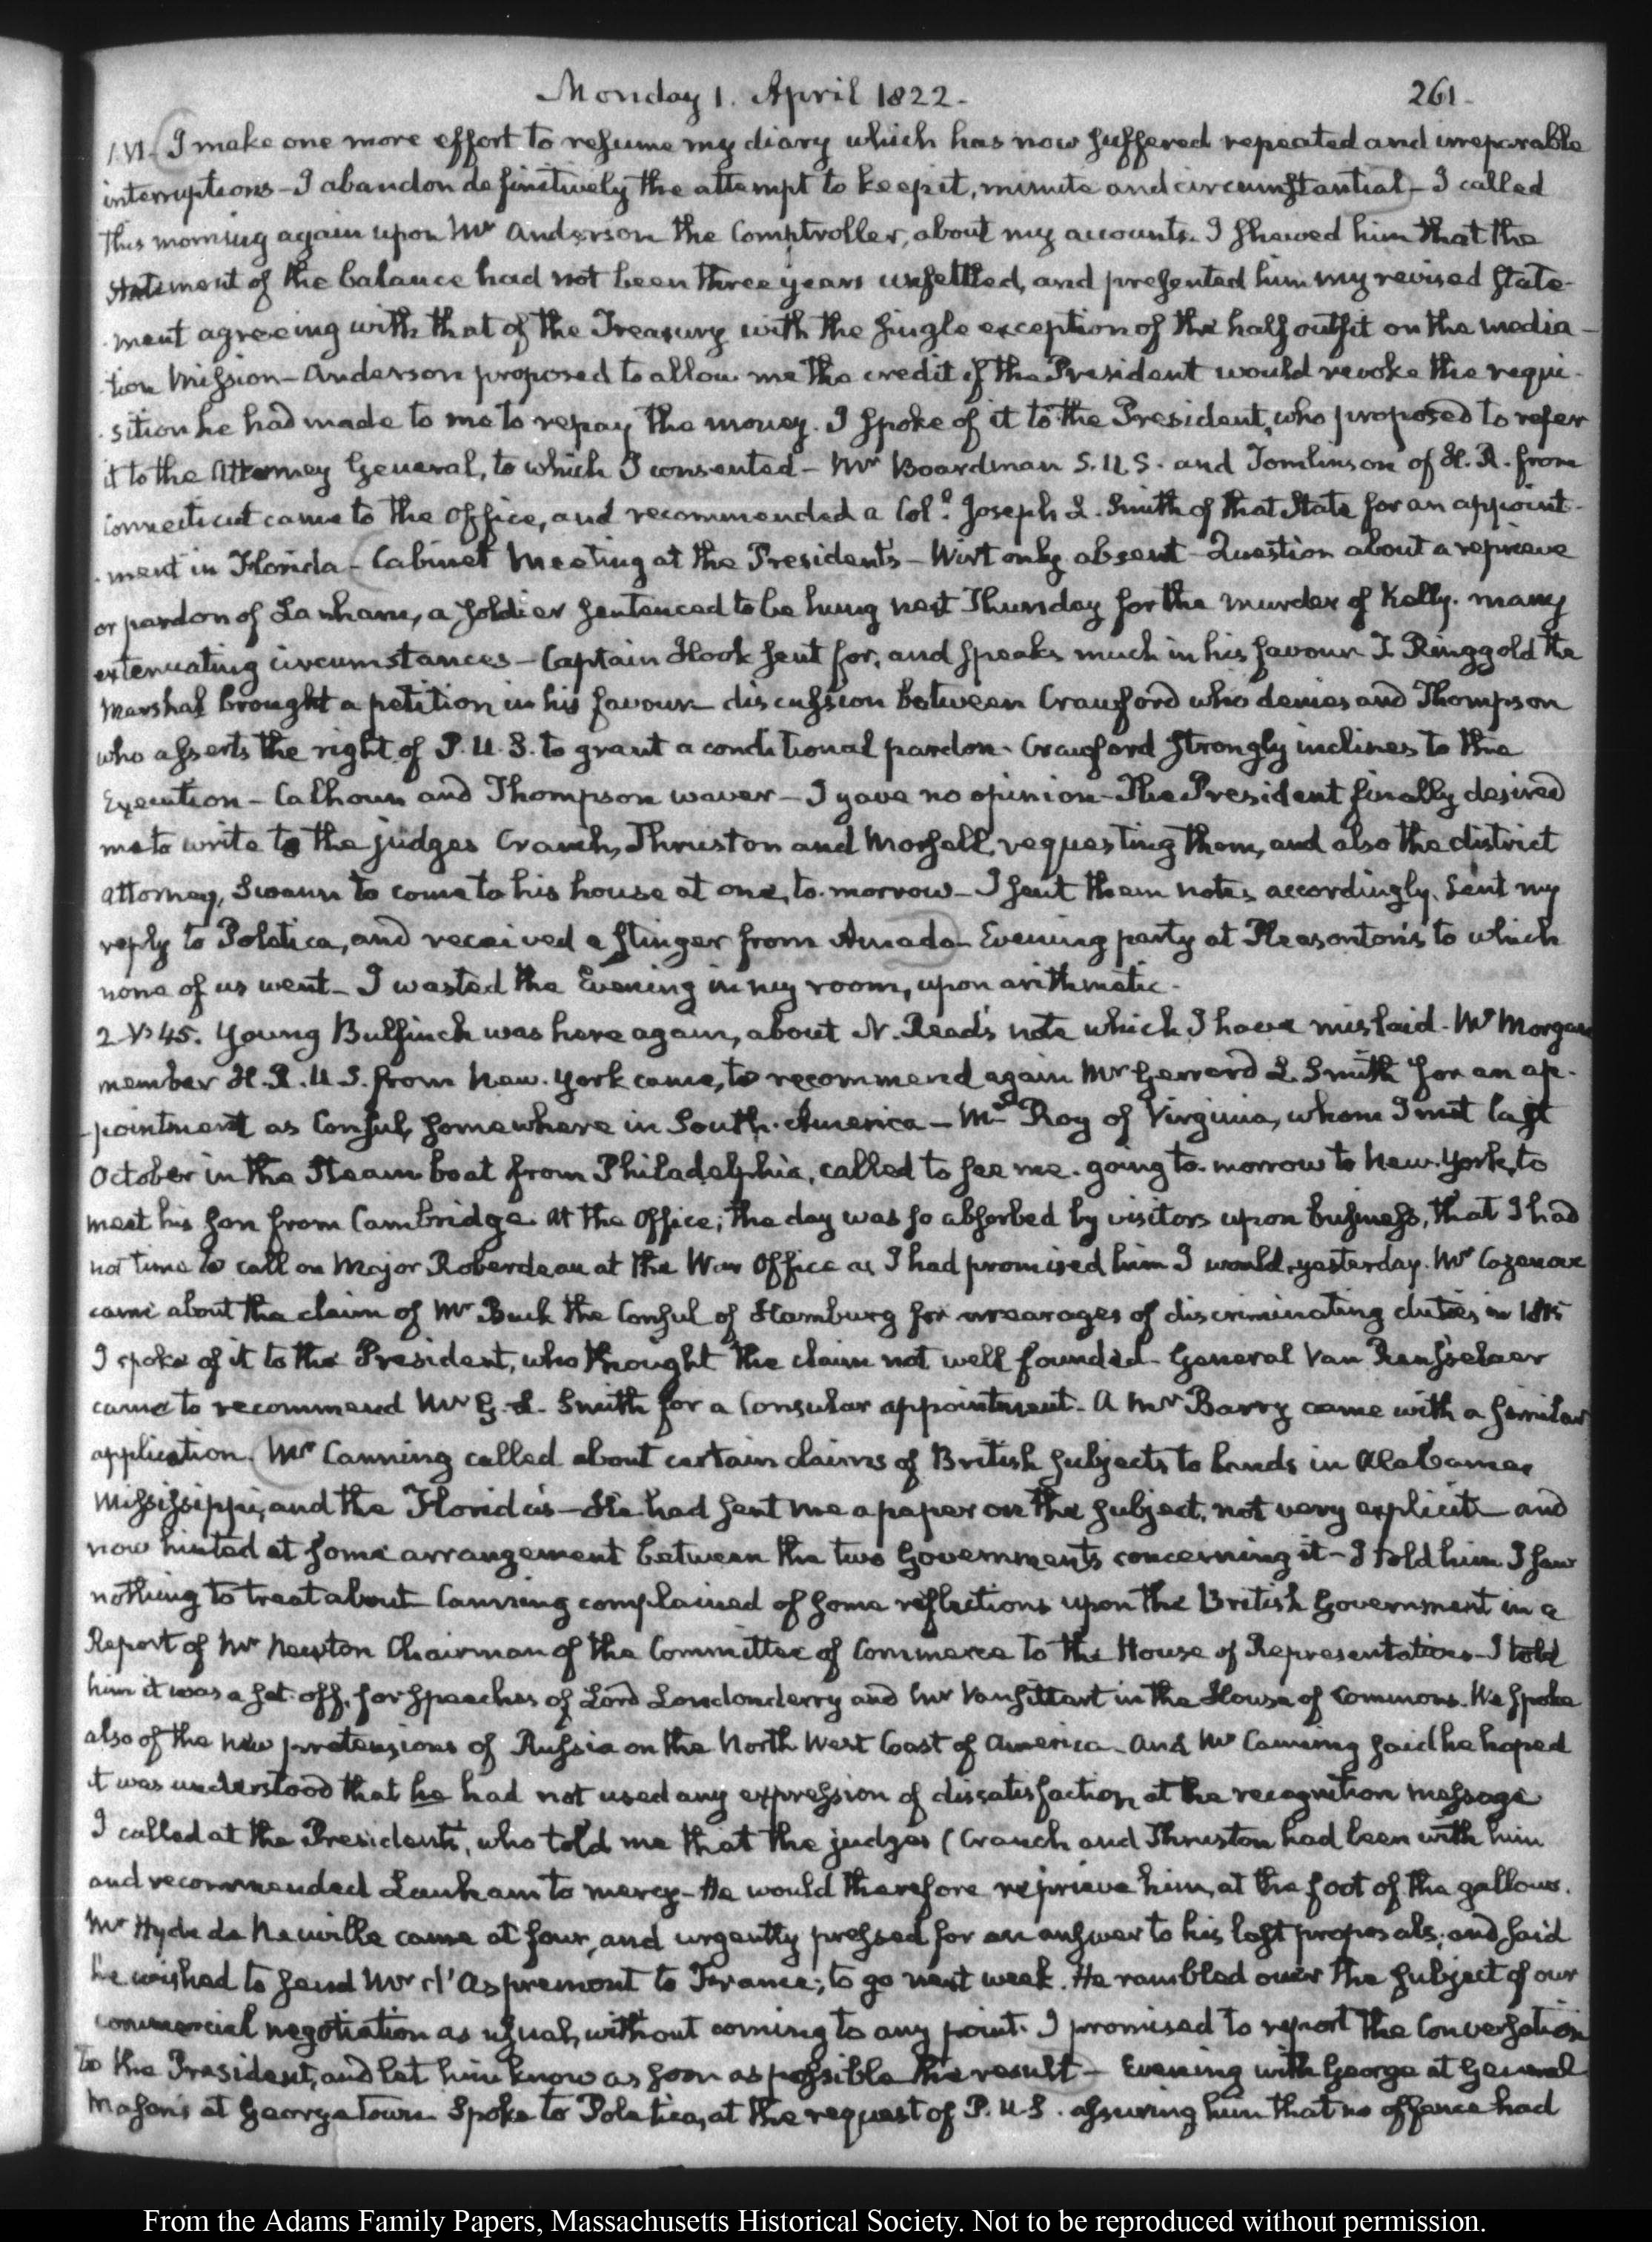 Monday 1. April 1822. 261.
1. VI. I make one more effort to resume my diary which has now suffered repeated and irreparable
interruptions - I abandon definitively the attempt to keep it, minute and circumstantial - I called
this morning again upon Mr Anderson the Comptroller, about my accounts. I shewed him that the
statement of the balance had not been three years unsettled, and presented him my revised state-
ment agreeing with that of the Treasury with the single exception of the half outfit on the media-
tion Mission - Anderson proposed to allow me the credit if the President would revoke the requi-
sition he had made to me to repay the money. I spoke of it to the President, who proposed to refer
it to the Attorney General, to which I consented - Mr Boardman S. U.S. and Tomlinson of H. R. from
Connecticut came to the Office, and recommended a Coll. Joseph L. Smith of that State for an appoint-
ment in Florida - Cabinet Meeting at the President's - Wirt only absent - Question about a reprieve
or pardon of Lanham, a soldier sentenced to be hung next Thursday for the murder of Kelly. many
extenuating circumstances - Captain Hook sent for, and speaks much in his favour T. Ringgold the
Marshal brought a petition in his favour - discussion between Crawford who denies and Thompson
who asserts the right of P. U. S. to grant a conditional pardon - Crawford strongly inclines to the
Execution - Calhoun and Thompson waver - I gave no opinion - The President finally desired
me to write to the judges Cranch, Thruston and Morsell, requesting them, and also the district
Attorney, Swann to come to his house at one, to-morrow - I sent them notes accordingly. Sent my
reply to Poletica, and received a stinger from Anuada - Evening party at Pleasonton's to which
none of us went - I wasted the Evening in my room, upon arithmetic.
2. V:45. Young Bulfinch was here again, about N. Read's note which I have mislaid. Mr Morgan
member H. R. U. S. from New-York came, to recommend again Mr Gerrard L. Smith for an ap-
pointment as Consul, somewhere in South-America - Mr Roy of Virginia, whom I met last
October in the Steam boat from Philadelphia, called to see me. going to-morrow to New-York, to
meet his son from Cambridge. At the Office; the day was so absorbed by visitors upon business, that I had
not time to call on Major Roberdeau at the War Office as I had promised him I would, yesterday. Mr Cazenove
came about the claim of Mr Buck the Consul of Hamburg for arrearages of discriminating duties in 1815
I spoke of it to the President, who thought the claim not well founded - General Van Rensselaer
came to recommend Mr G. L. Smith for a Consular appointment. A Mr Barry came with a similar
application. Mr Canning called about certain claims of British subjects to lands in Alabama,
Mississippi, and the Florida's - He had sent me a paper on the subject, not very explicit - and
now hinted at some arrangement between the two Governments concerning it - I told him I saw
nothing to treat about - Canning complained of some reflections upon the British Government in a
Report of Mr Newton Chairman of the Committee of Commerce to the House of Representatives - I told
him it was a set-off, for speeches of Lord Londonderry and Mr Vansittart in the House of Commons. We spoke
also of the new pretensions of Russia on the North West Coast of America - And Mr Canning said he hoped
it was understood that he had not used any expression of dissatisfaction at the recognition message
I called at the President's, who told me that the judges (Cranch and Thruston had been with him
and recommended Lanham to mercy - He would therefore reprieve him, at the foot of the gallows.
Mr Hyde de Neuville came at four, and urgently pressed for an answer to his last proposals; and said
he wished to send Mr d'Aspremont to France; to go next week. He rambled over the subject of our
commercial negotiation as usual, without coming to any point. I promised to report the Conversation
to the President, and let him know as soon as possible the result - Evening with George at General
Mason's at Georgetown Spoke to Poletica, at the request of P. U. S. assuring him that no offence had
From the Adams Family Papers, Massachusetts Historical Society. Not to be reproduced without permission.